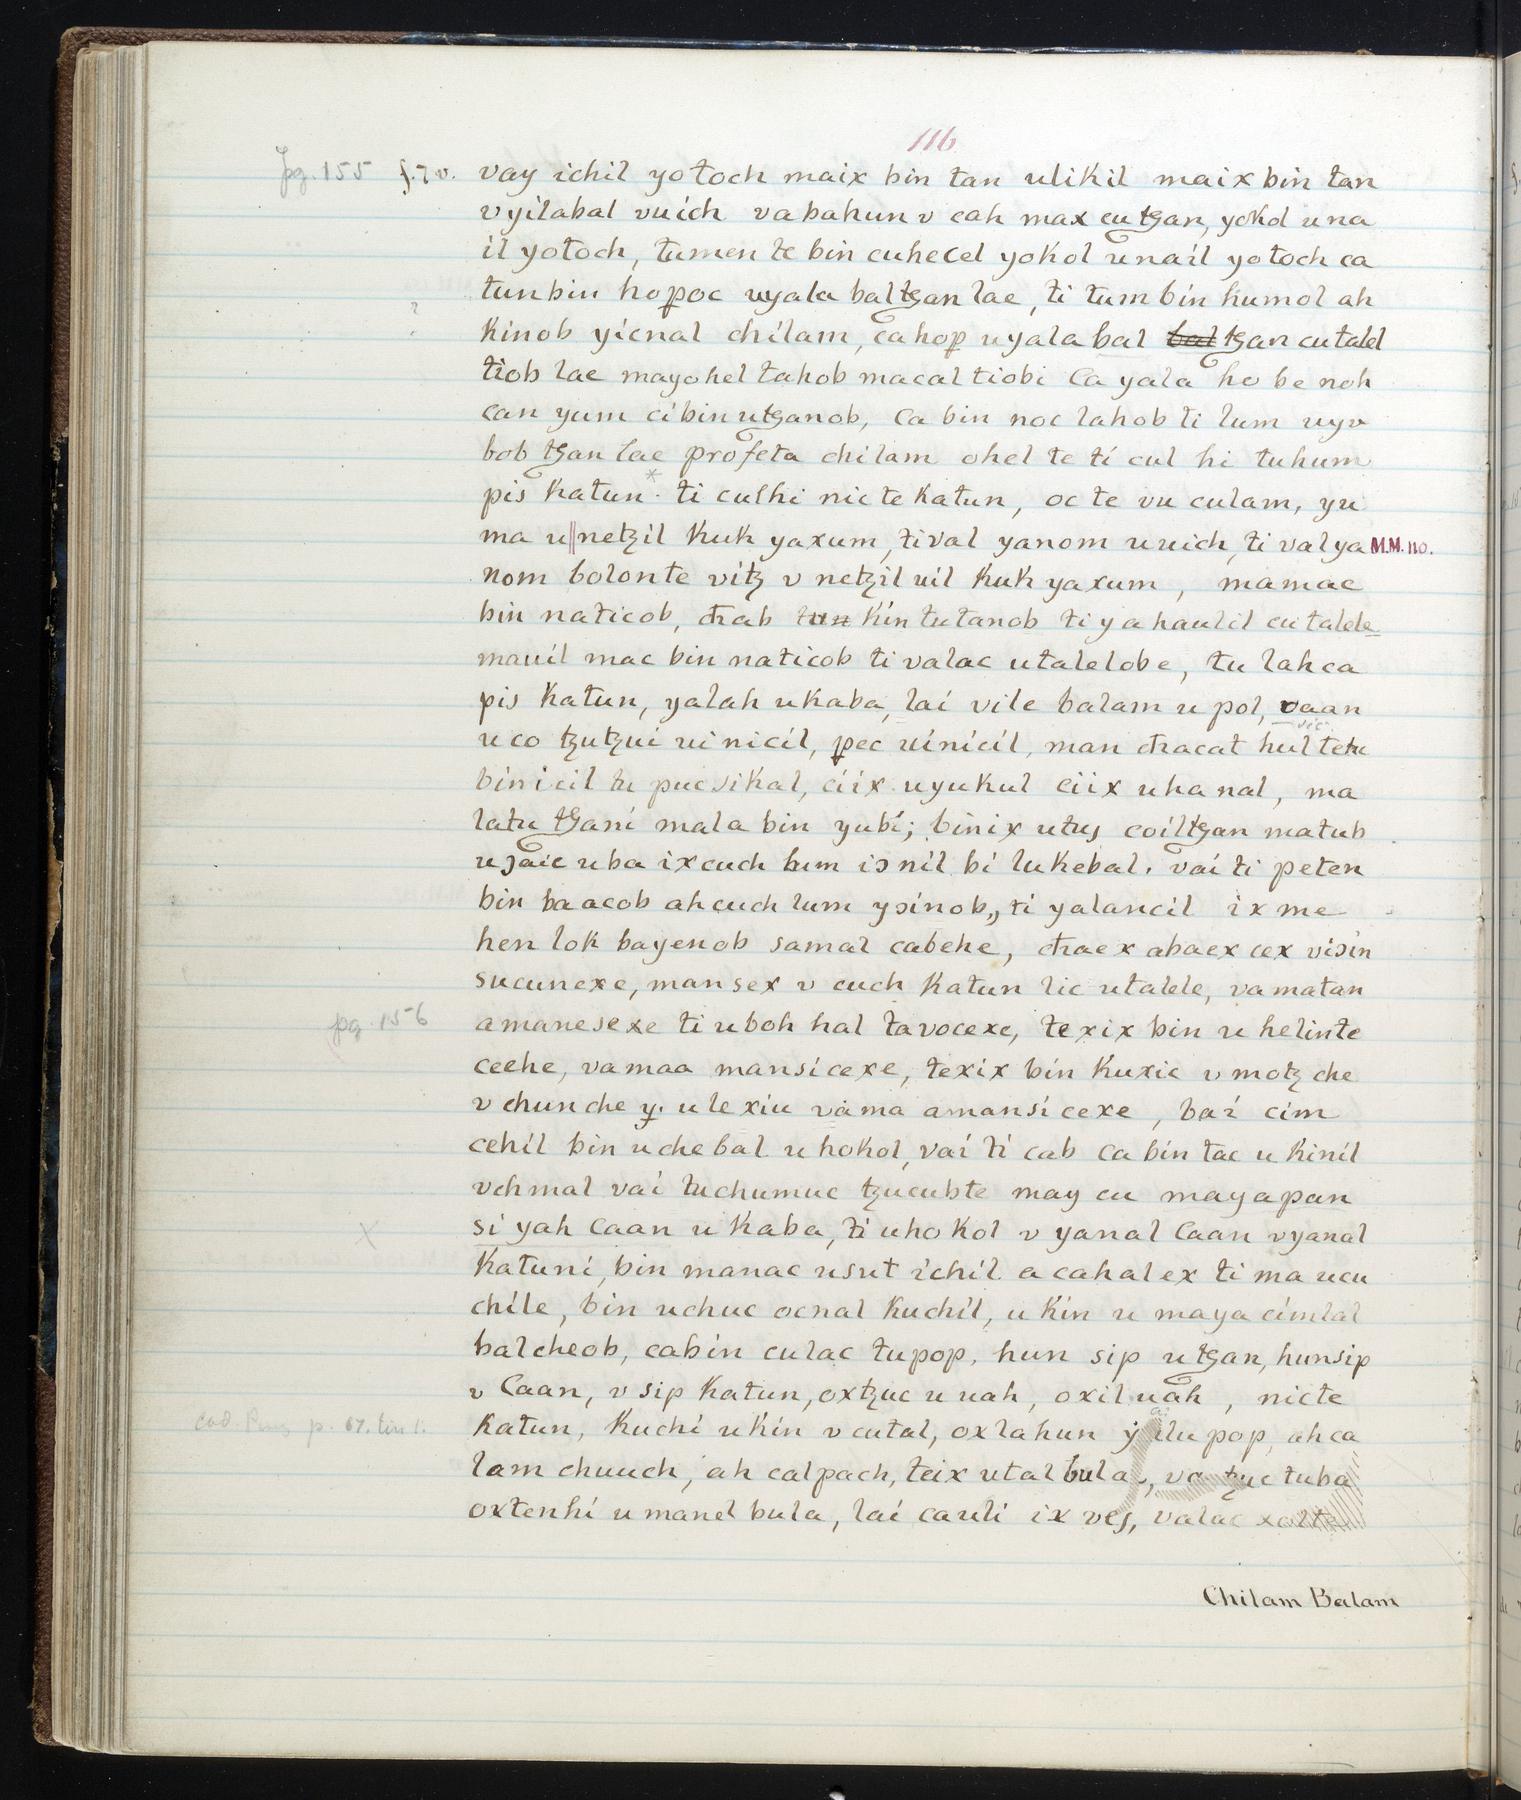 116
pg. 155 f. 7 v. vay ichil yotoch maix bin tan ulikil maix bin tan
v yilabal vuich vabahun v cah max cu tħan, yokol u na
il yotoch, tumen te bin cuhecel yokol unail yotoch ca
tun bin hoppoc uyala baltħan lae, ti tum bin humol ah
? kinob yicnal chilam, ca hopp uyala bal bal tħan cu talel
tiob lae mayohel tahob macal tiobi Ca yala ho be noh
can yum ci bin utħanob, Ca bin noc lahob ti lum uyv
bob tħan lae profeta chilam ohel te ti cul hi tuhum
pis katun * ti culhi nicte katun, oc te vu culam, yu
ma u || netzil kuk yaxum, tival yanom uuich, ti val ya M.M. no.
nom bolonte vitz v netzil uil kuk yaxum, mamac
bin naticob, chab tun kin tutanob ti y a haulil cu talele
mauil mac bin naticob ti valac utalelobe, tu lahca
pis katun, yalah ukaba, lai vile balam u pol, vaan
u co tzutzui uinicil, ppec uinicil, man chacat hul te tu
vic.
binicil tu pucsikal, ciix uyukul ciix uhanal, ma
latu tħani mala bin yubi; binix utus coiltħan matub
u ɔaic uba ixcuch lum iɔnil bi lukebal. vai ti peten
bin baacob ahcuch lum yɔinob,, ti yalancil ix me
hen lok bayenob samal cabehe, chaex abaex cex viɔin
sucunexe, mansex v cuch katun lic utalele, vamatan
pg. 156 amanesexe ti uboh hal tavocexe, texix bin u helinte
ceehe, vamaa mansicexe, texix bin kuxic v motz che
v chunche y. ule xiu vama amansicexe, bai cim
cehil bin uchebal u hokol, vai ti cab ca bin tac u kinil
vchmal vai tuchumuc tzucubte may cu mayapan
X si yah Caan u kaba, ti uhokol v yanal Caan vyanal
katuni, bin manac usut ichil a cahalex ti ma ucu
chile, bin uchuc ocnal kuchil, u kin u maya cimlal
balcheob, cabin culac tupop, hun sip utħan, hunsip
v Caan, v sip katun, oxtzuc u uah, oxil uah, nicte
cod. p. 67. lin 1. katun, kuchi ukin v cutal, oxlahun y ilu pop, ah ca
lam chuuch, ah calpach, teix utal bula, tzuc tuba
oxtenhi u manel bula, lai cauli ix ves, valac
Chilam Balam